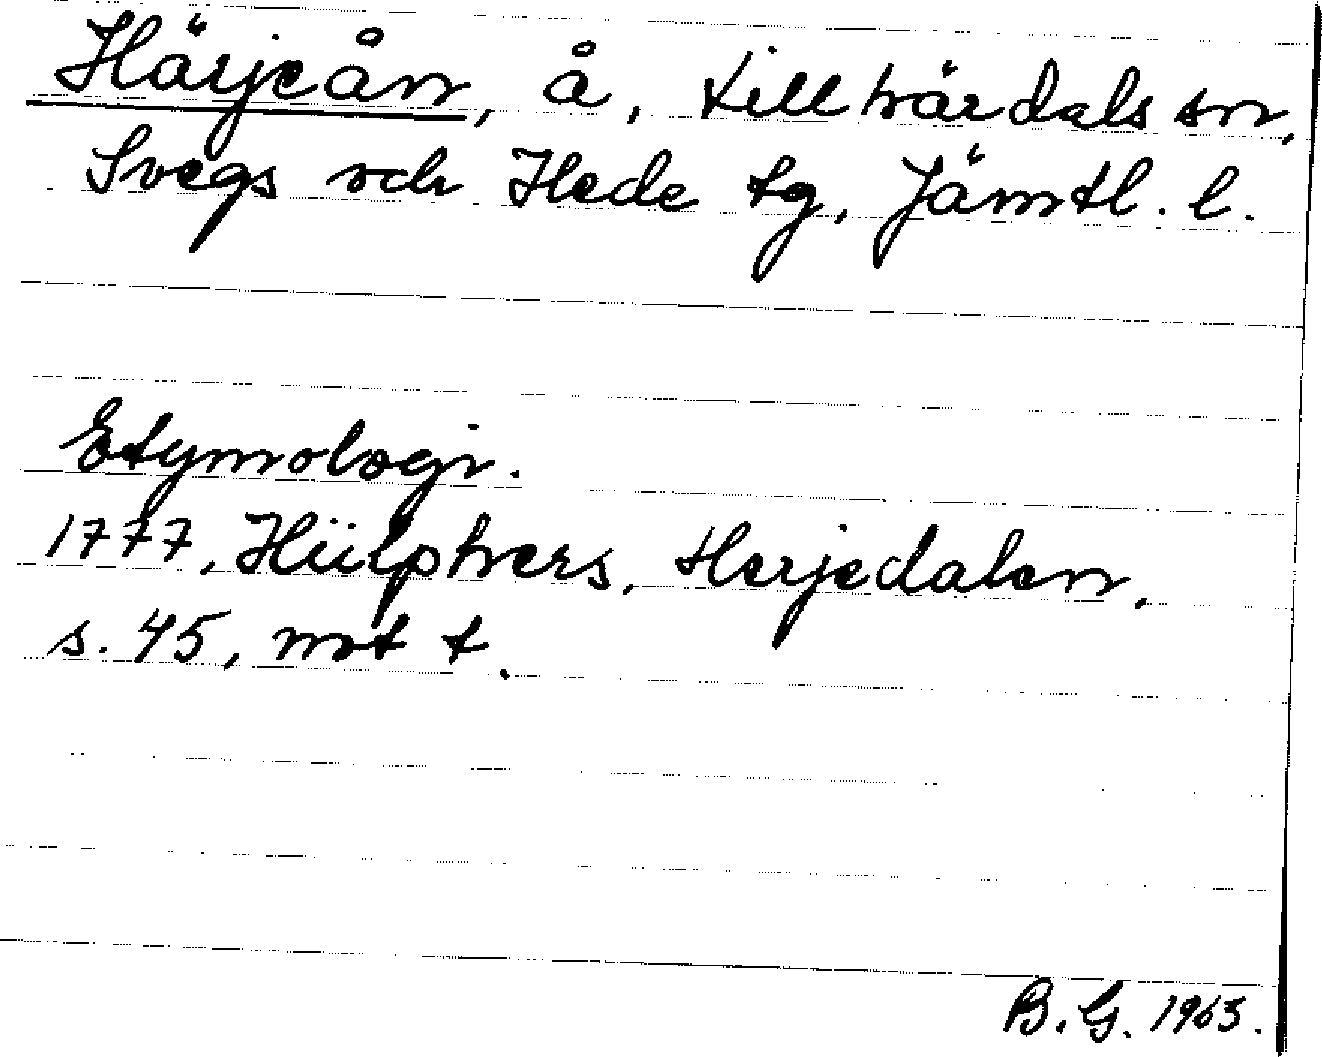 Härjeån, å, Lillhärdals sn,
Svegs och Hede tg, Jämtl. l.
Etymologi.
1777, Hülphers, Herjedalen,
s. 45, not t.
B. G. 1963.